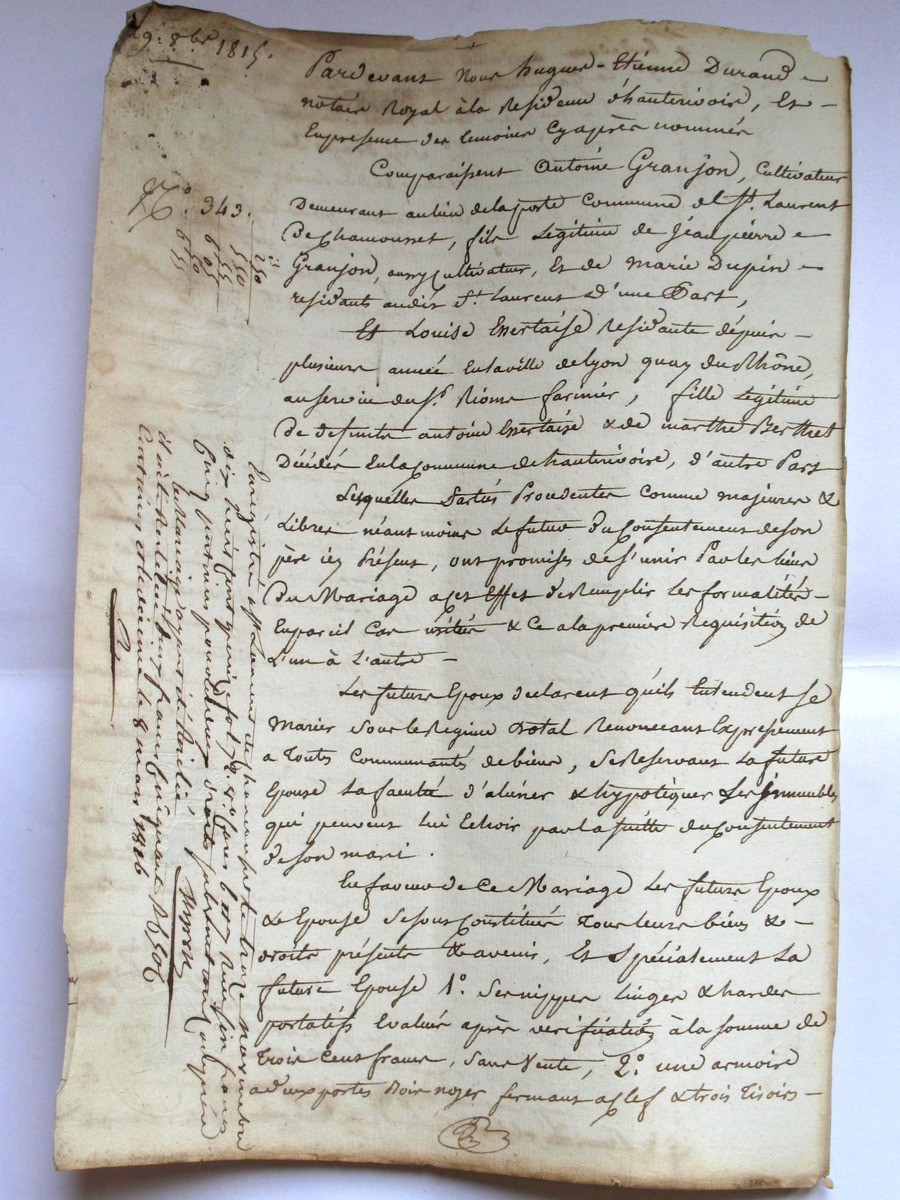 29. 8bre 1815.
Pardevant Nous hugues-Etienne Durand
notaire Royal à la Residence d'hauterivoire, Et
En presence des temoins Cy après nommés
Comparaissent Antoine Granjon, Cultivateur
Demeurant au lieu de la porte Commune de St. Laurent
de Chamousset, fils Légitime de Jean pierre
Granjon, aussy Cultivateur, Et de Marie Dupin
residants audit St. Laurent D'une Part,
Et Louise Essertaise Residante depuis
plusieurs année En la ville de Lyon quay du Rhône,
au service du Sr. Riome farinier, fille Légitime
De defunts antoine Essertaise & de marthe Berthet
Décédés En la Commune de hauterivoire, d'autre Part
Lesquelles Parties Procedantes Comme majeures &
Libres néant moins Le futur Du Consentement de son
père icy Présent, ont promises de s'unir Par les liens
Du Mariage a cet Effet de Remplir Les formalités
En pareil Cas usités & Ce a la premiere Requisition de
L'un à L'autre
Les futurs Epoux declarent qu'ils Entendent Se
Marier Sous le Regime Dotal Renonceant Expressement
a Toutes Communautés de biens, Se Reservant La future
Epouse La faculté d'aliéner & hypotèquer Les immeubles
qui peuvent lui Echoir par la suitte du Consentement
de son mari.
En faveur de Ce Mariage Les futurs Epoux
& Epouse Se sont Constitués Tous leurs biens &
droits présents & avenir, Et Spécialement La
future Epouse 1°. Ses nippes Linges & hardes
portatifs Evalués après verification à la somme de
Trois Cent francs, Sans Vente, 2°. une armoire
a deux portes Bois noyer fermant a Clef & trois Tiroirs
N°. 343.
Enregistré à St Laurent de Chamousset le trois novembre
dix huit cent quinze fol. 72
le Mariage ayant été
le 8 mars 1816